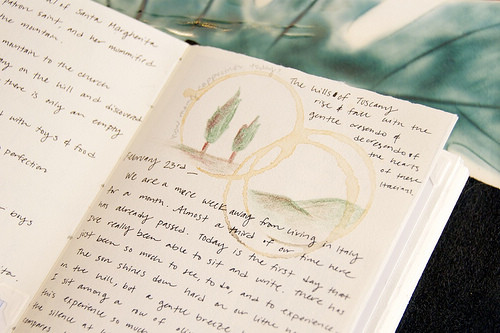 al of Santa Margherita
patron saint and her mummified
the mountain.
mountain to the church
on the hill and discovered
there is only an empty
with toys & food
perfection
boys
The hills of Tuscany
rise & fall with the
gentle cresendo &
decresendo of
the hearts
of these
Italians.
February 23rd —
We are a mere week away from living in Italy
for a month. Almost a third of our time here
has already passed. Today is the first day that
I've really been able to sit and write. There has
just been so much to see, to do, and to experience.
The sun shines down hard on our little
on the hill, but a gentle breeze
I sit among a row of
this experience so much
the silence at
compares